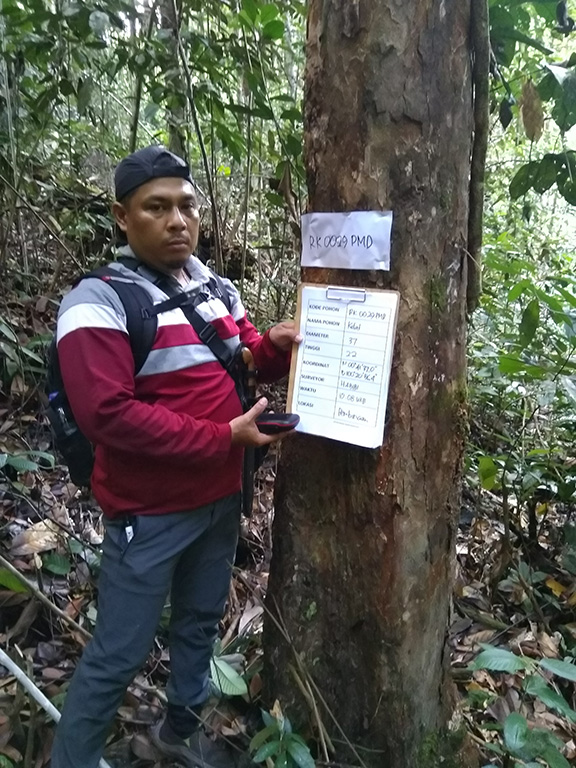 RK 0029 PMD
KODE POHON RK 0029 PMD
NAMA POHON
DIAMETER 37
TINGGI 22
KOORDINAT
SURVEYOR
WAKTU 10.08 WIB
LOKASI